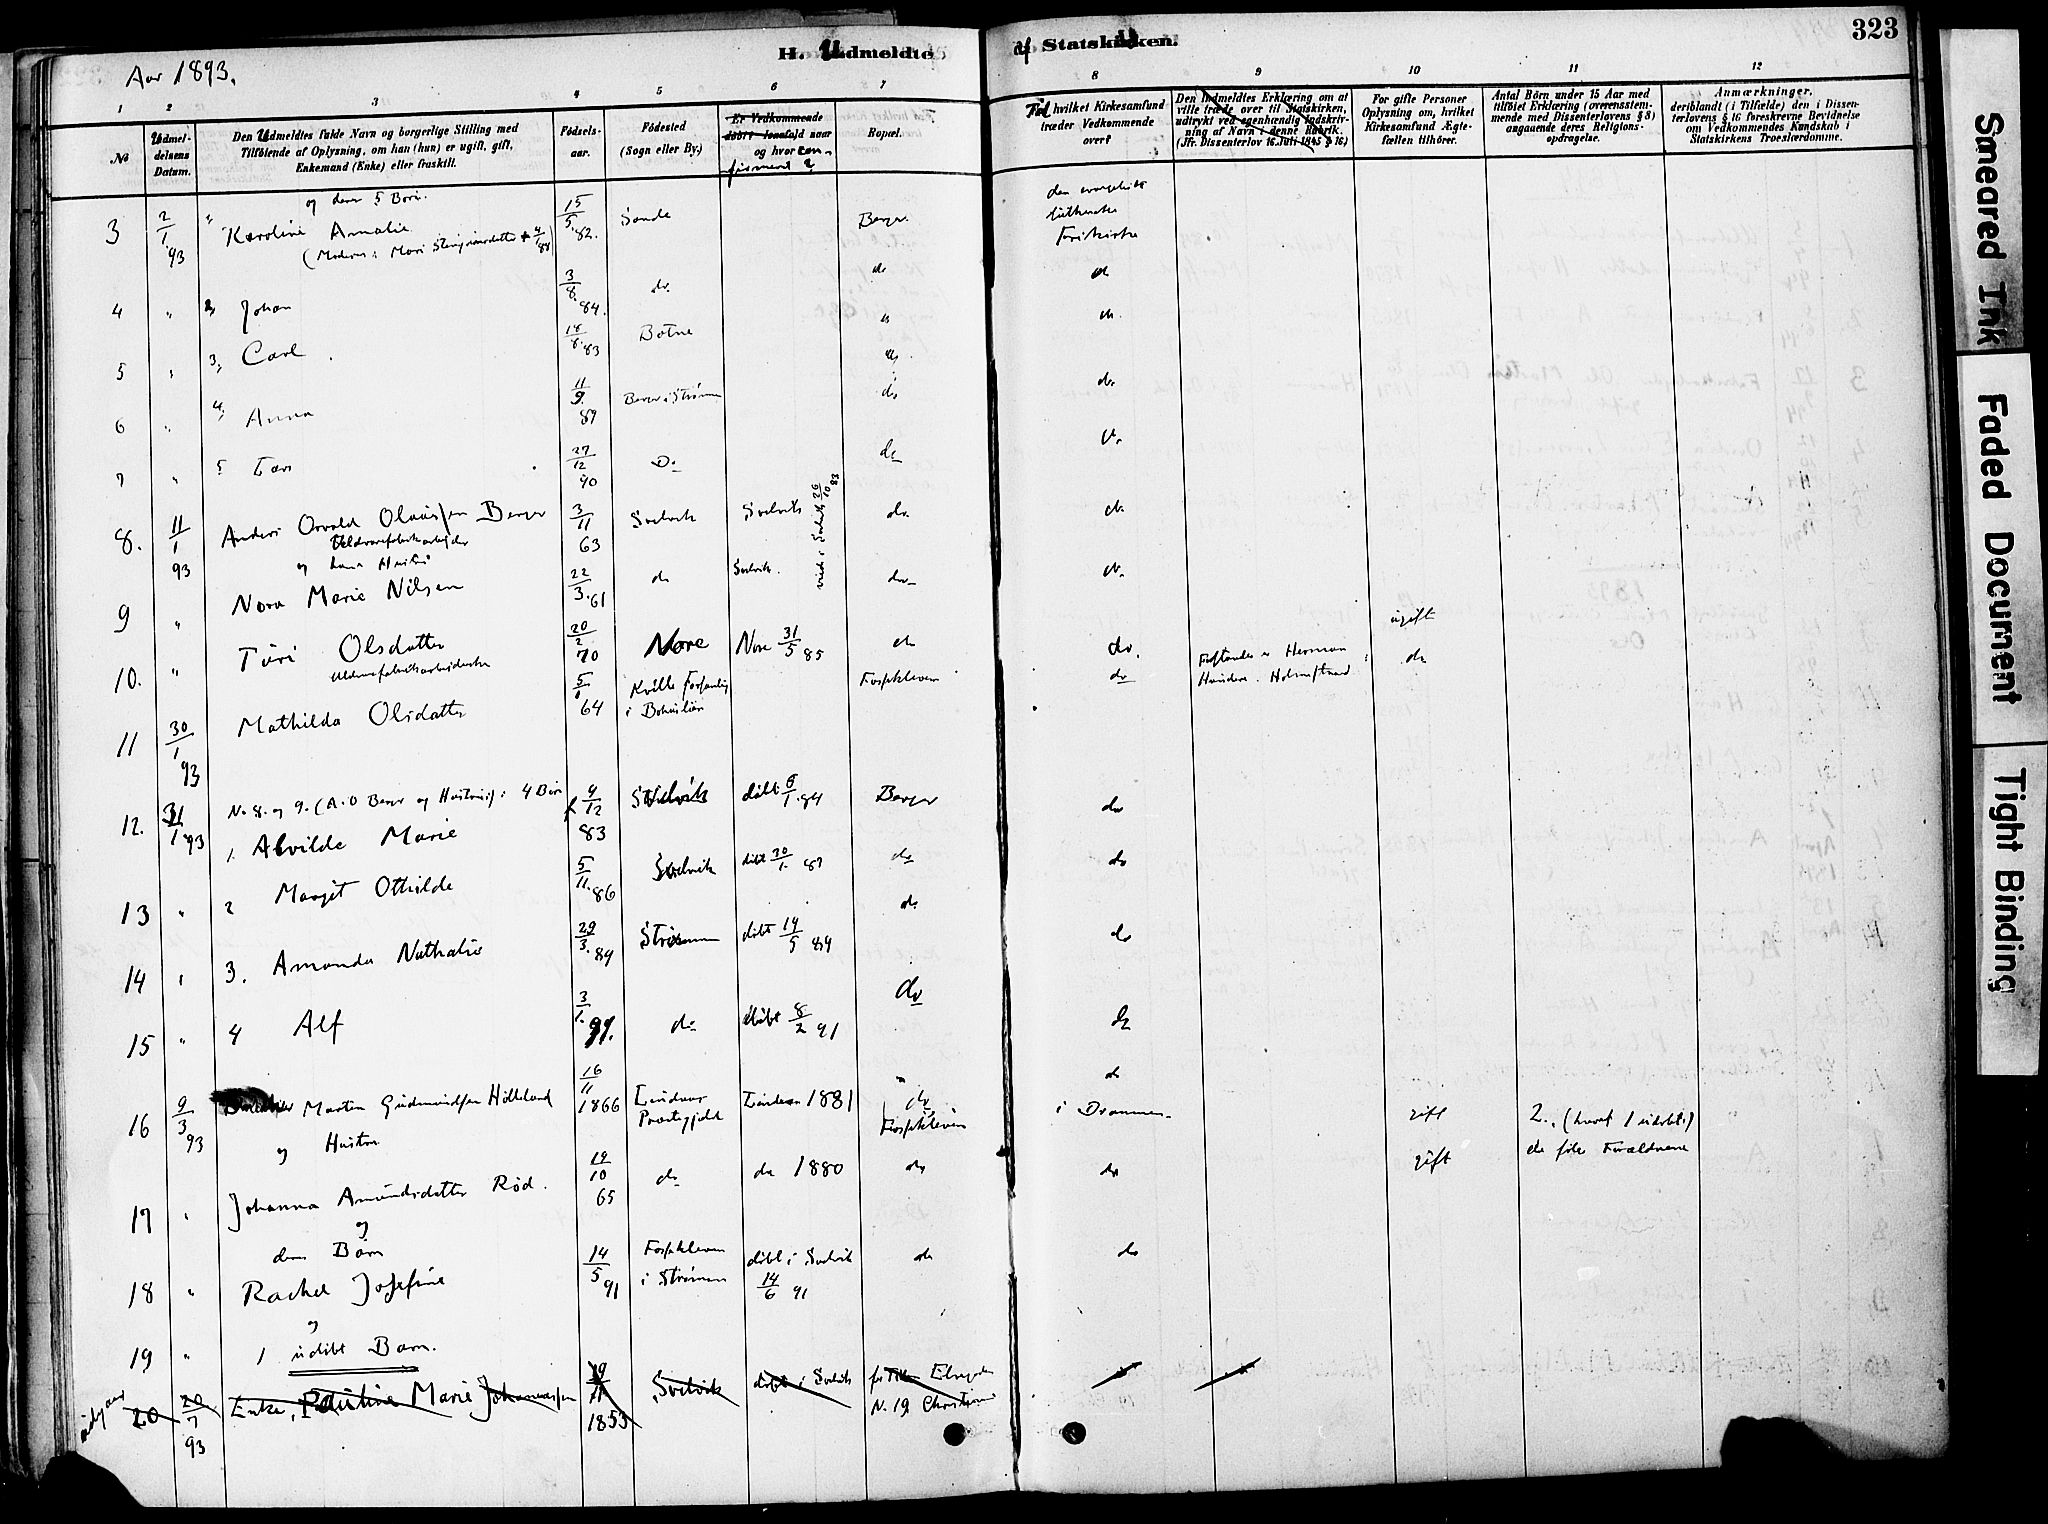 323
H. Udmeldte
af Statskirken.
Aar 1893.
1 2 3 4 5 6 7 8 9 10 11 12
No
Udmel-
delsens
Datum.
Den Udmeldtes fulde Navn og borgerlige Stilling med
Tilføiende af Oplysning, om han (hun) er ugift, gift,
Enkemand (Enke) eller fraskilt.
Fødsels-
aar.
Fødested
(Sogn eller By.)
Er Vedkommende
døbt? Ionsfald naar
og hvor con-
firmeret?
Bopæl.
Til hvilket Kirkesamfund
træder Vedkommende
over?
Den Indmeldtes Erklæring om at
ville træde over til Statskirken,
udtrykt ved egenhændig Indskriv-
ning af Navn i denne Rubrik.
(Jfr. Dissenterlov 16 Juli 1845 § 16)
For gifte Personer
Oplysning om, hvilket
Kirkesamfund Ægte-
fællen tilhører.
Antal Børn under 15 Aar med
tilføiet Erklæring (overensstem-
mende med Dissenterlovens § 8)
angaaende deres Religions-
opdragelse.
Anmærkninger,
deriblandt (i Tilfælde) den i Dissen-
terlovens § 16 foreskrevne Bevidnelse
om Vedkommendes Kundskab i
Statskirkens Troeslærdomme.
og deres 5 Børn.
3 2/1 93 Karoline Amalie 15/5 82. Sande Berger den evangelisk lutherske Frikirke
(Moderen: Mari Steingrimsdatter
4 " 2, Johan 3/8 84. do. do
5 " 3, Carl 18/8 83 Botne do.
6 " 4, Anna 11/9 89 Berger i Strømm do do.
7 " 5 Lars 27/12 90 Do do do.
8. 11/1 93 Anders Osvald Olaussen Berger 3/11 63 Svelvik Svelvik do. do.
Uldvarefabrikarbejder
og hans Hustru
viede i Svelvik 26/10 83
9 " Nora Marie Nilsen 22/3 61 do Svelvik. do do.
10. " Turi Olsdatter 20/2 70 Nore Nore 31/5 85 do do. ugift
Uldvarefabrikarbeiderske
11 30/1 93 Mathilda Olsdatter 64 Kville Forsamling i Bohuslän Fossekleven do Forstander er Herman do
Holmestrand
12. 31/1 93 No. 8. og 9. (A. O Berger og Hustrus): 4 Børn
1. Alvilde Marie f 4/12 83 Svelvik døbt 6/1 84 Berger do
13 " 2 Margit Othilde 5/11. 86 Svelvik døbt 30/1. 87 do do
14 " 3. Amanda Nathalie 29/3. 89 Strømm døbt 19/5 89 do do
15 " 4 Alf 3/1. 91. do døbt 8/2 91 do do
16 9/3 93 Martin Gudmundsen Hølleland 16/11 1866 Lindaas Præstegjeld Lindaas 1881 do Fossekleven do i Drammen. gift 2., (hvoraf 1 udøbt)
og Hustru
17 " Johanna Amundsdatter Rød. 19/10 65 do do 1880 do do gift de følge Forældrene
og
deres Børn
18 " Rachel Josefine 14/5 91 Fossekleven i Strømm døbt i Svelvik 14/6 91 do do
og
19 " 1 udøbt Barn.
udgaar 20 20/7 93 Enke, Pauline Marie Johannessen 1853 Svelvik døbt i Svelvik
N. 19